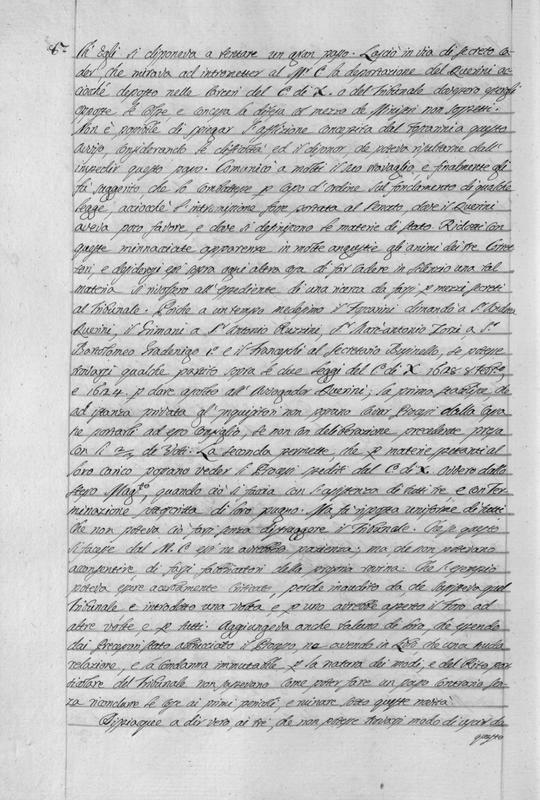 6.
Ch'Egli si disponeva a tentare un gran passo. Lasciò in via di secreto ca-
der, che mirava ad intrometter al M.r C. la deportazione del Querini ac-
ciochè deposto nelle forze del C. di X. o del Tribunale dovessero
le difesa al mezzo de Ministri non sospetti.
Non è possibile di spiegar l'afflizione concepita dal Foscarini a questo
avviso, considerando le difficoltà ed il disonor che poteva risultarne dall'
impedir questo passo. Comunicò a molti il suo travaglio, e finalmente gli
fù suggerito che lo combattesse p Capo d'ordine sul fondamento di qualche
legge, acciochè l'intromissione fosse portata al Senato, dove il Querini
aveva poco favore, e dove si definiscono le materie di Stato. Ridotti con
queste minnacciate apparenze in molte angustie gli animi dei tre Corret-
tori, e desiderosi più sopra ogni altra cosa di far cadere in silenzio una tal
materia si rivolsero all'espediente di una ricerca da farsi p mezzi secreti
al Tribunale. Perchè a un tempo medesimo il Foscarini dimandò a S.r Andrea
Querini, il Grimani a S.r Antonio Ruzzini, S.r Marc'antonio Zorzi a S.r
Bartolomeo Gradenigo 1.o e il Franceschi al secretario Businello, se potesse
trovarsi qualche partito sopra le due leggi del C. di X. 1628
e 1624. p dare ascolto all'Avvogador Querini; la prima stabilisce che
ad istanza privata gl'Inquisitori non possano levar Processi dalla Cassa
ne portarli ad esso Consiglio, se non con deliberazione precedente presa
con li 2/3 de Voti. La seconda permette, che p materie spettanti al
loro carico possano veder li Processi spediti del C. di X. ovvero dello
stesso Mag.to, quando ciò si faccia con l'assistenza di tutti tre e con Ter-
minazione sottoscritta di loro pugno. Ma fù risposta uniforme di tutti
che non poteva ciò farsi senza distruggere il Tribunale. Che se questo
si facesse dal M. C. essi ne avrebbero pazienza; ma che non potevano
acconsentire, di farsi fabbricatori della propria rovina: Che l'esempio
poteva essere acutamente criticato, perchè inaudito da che sussisteva quel
Tribunale e introdotto una volta e p uno avrebbe aperto il Foro ad
altre volte e p tutti. Aggiungeva anche taluno di loro, che essendo
dai Precessori stato abbracciato il Processo, ne avendo in che una nuda
relazione, e la condanna immutabile p la natura dei modi, e del Rito par-
ticolare del Tribunale non sapevano come poter fare un passo contrario sen-
za sconcludere le cose ai primi pericoli, e ruinare sotto queste novità.
Dispiacque a dir vero, ai tré, che non potesse trovarsi modo di uscir da
questo